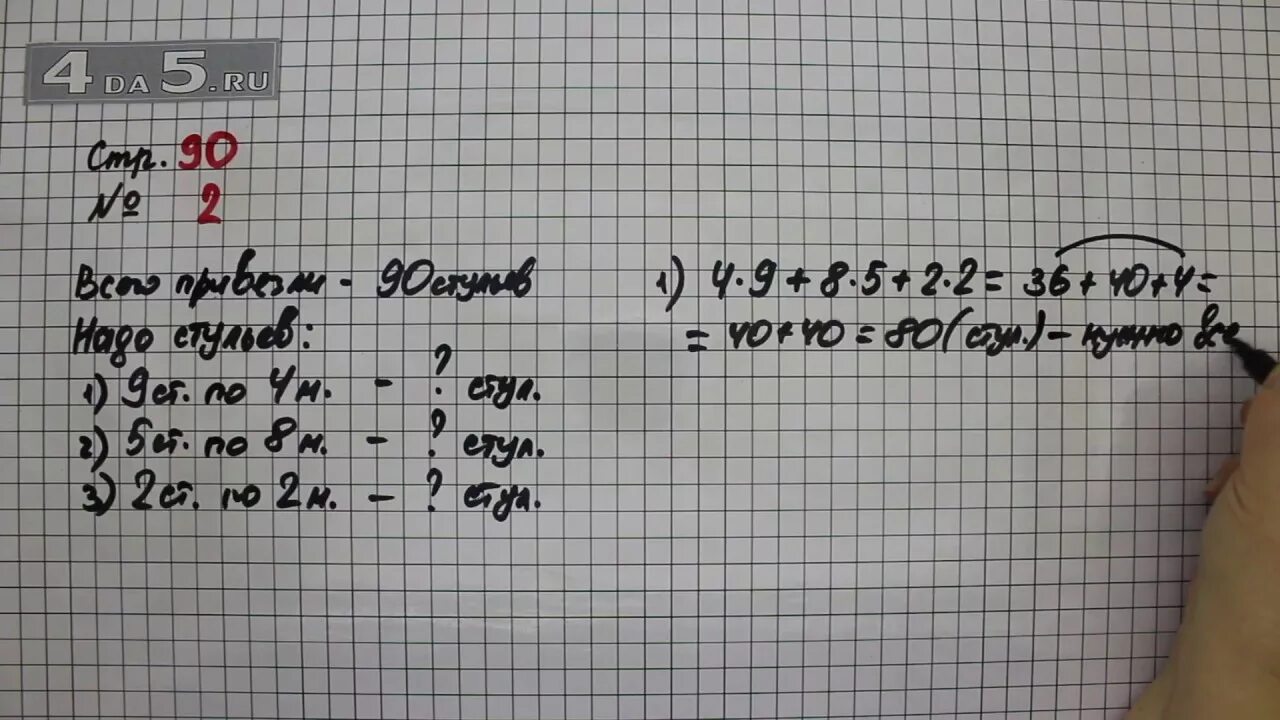 4DA5.RU
Стр. 90
№ 2
Всего привезли - 90 стульев
Надо стульев:
1) 9 ст. по 4 м. - ? стул.
2) 5 ст. по 8 м. - ? стул.
3) 2 ст. по 2 м. - ? стул.
1) 4·9+8·5+2·2=36+40+4=
=40+40=80(стул.)- нужно все